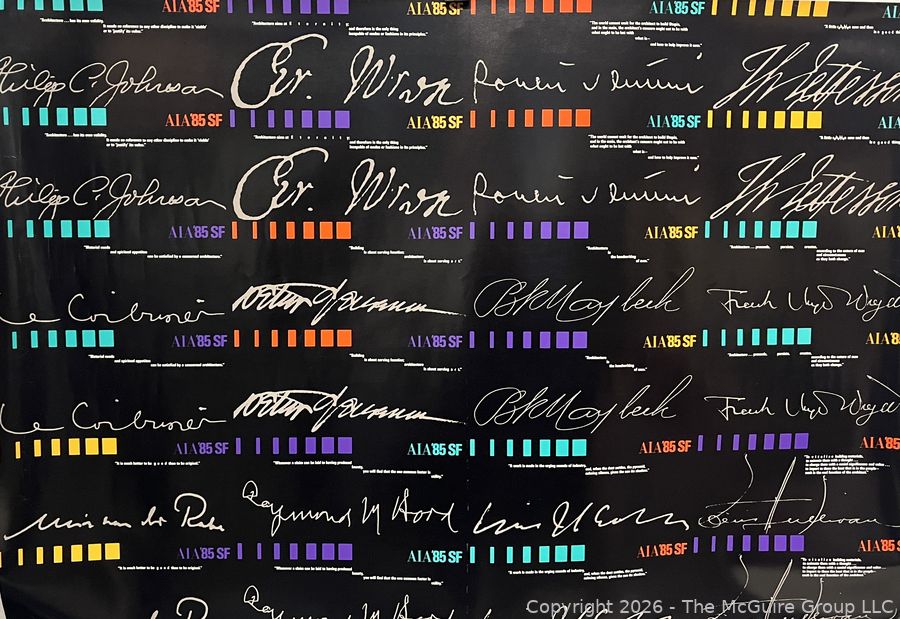 "Architecture .... has its own validity.
It needs no reference to any other discipline to make it 'viable'
or to 'justify' its value."
AIA'85 SF
"Architecture aims at Eternity
and therefore is the only thing
incapable of modes or fashions in its principles."
AIA'85 SF
"The world cannot wait for the architect to build Utopia,
and in the main, the architect's concern ought not to be with
what ought to be but with
what is—
and how to help improve it now."
AIA'85 SF
AIA
Philip C. Johnson
Chr. Wren
Robert Venturi
Th Jefferson
AIA'85 SF
AIA'85 SF
AIA'85 SF
AIA
"Architecture .... has its own validity.
It needs no reference to any other discipline to make it 'viable'
or to 'justify' its value."
"Architecture aims at Eternity
and therefore is the only thing
incapable of modes or fashions in its principles."
"The world cannot wait for the architect to build Utopia,
and in the main, the architect's concern ought not to be with
what ought to be but with
what is—
and how to help improve it now."
Philip C. Johnson
Chr. Wren
Robert Venturi
Th Jefferson
AIA'85 SF
AIA'85 SF
AIA'85 SF
AIA'8
"Material needs
and spiritual appetites
can be satisfied by a concerned architecture."
"Building
is about serving function;
architecture
is about serving art."
"Architecture
is
the handwriting
of man."
"Architecture .... proceeds, persists, creates,
according to the nature of man
and circumstances
as they both change."
Le Corbusier
Arthur Erickson
B R Maybeck
Frank Lloyd Wright
AIA'85 SF
AIA'85 SF
AIA'85 SF
AIA'8
"Material needs
and spiritual appetites
can be satisfied by a concerned architecture."
"Building
is about serving function;
architecture
is about serving art."
"Architecture
is
the handwriting
of man."
"Architecture .... proceeds, persists, creates,
according to the nature of man
and circumstances
as they both change."
Le Corbusier
B R Maybeck
Frank Lloyd Wright
AIA'85 SF
AIA'85 SF
AIA'85 SF
AIA'85
"It is much better to be good than to be original."
you will find that the one common factor is
utility."
"A work is made in the urging sounds of industry,
and, when the dust settles, the pyramid,
echoing silence, gives the sun its shadow."
"To vitalize building materials,
to animate them with a thought ...
to charge them with a social significance and value ...
Mies van der Rohe
Raymond M Hood
Louis I Kahn
Louis Sullivan
AIA'85 SF
AIA'85 SF
AIA'85 SF
AIA'85
"It is much better to be good than to be original."
you will find that the one common factor is
utility."
"A work is made in the urging sounds of industry,
and, when the dust settles, the pyramid,
echoing silence, gives the sun its shadow."
"To vitalize building materials,
to animate them with a thought ...
Copyright 2026 - The McGuire Group LLC